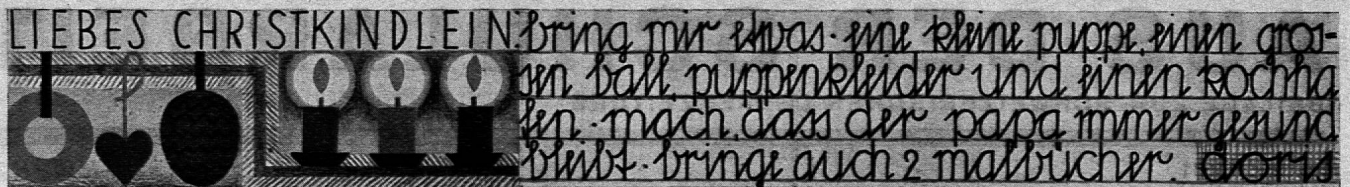 LIEBES CHRISTKINDLEIN. bring mir etwas. eine kleine puppe, einen gros-
sen ball, puppenkleider und einen kochha
fen. mach, dass der papa immer gesund
bleibt. bringe auch 2 malbücher. doris